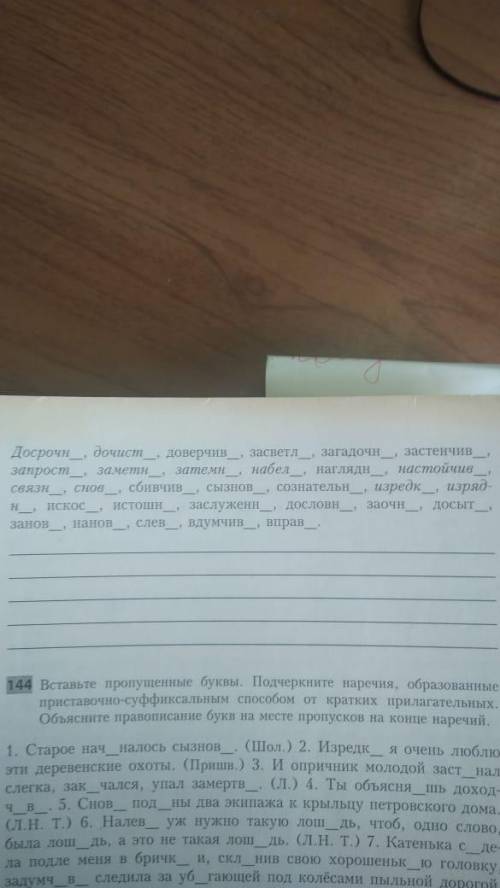 Досрочн__, дочист__, доверчив__, засветл__, загадочн__, застенчив__,
запрост__, заметн__, затемн__, набел__, наглядн__, настойчив__,
связн__, снов__, сбивчив__, сызнов__, сознательн__, изредк__, изряд-
н__, искос__, истошн__, заслуженн__, дословн__, заочн__, досыт__,
занов__, нанов__, слев__, вдумчив__, вправ__.
144 Вставьте пропущенные буквы. Подчеркните наречия, образованные
приставочно-суффиксальным способом от кратких прилагательных.
Объясните правописание букв на месте пропусков на конце наречий.
1. Старое нач__налось сызнов__. (Шол.) 2. Изредк__ я очень люблю
эти деревенские охоты. (Пришв.) 3. И опричник молодой заст__нал
слегка, зак__чался, упал замертв__. (Л.) 4. Ты объясня__шь доход-
ч__в__. 5. Снов__ под__ны два экипажа к крыльцу петровского дома.
(Л.Н. Т.) 6. Налев__ уж нужно такую лош__дь, чтоб, одно слово,
была лош__дь, а это не такая лош__дь. (Л.Н. Т.) 7. Катенька с__де-
ла подле меня в бричк__ и, скл__нив свою хорошеньк__ю головку,
задумч__в__ следила за уб__гающей под колёсами пыльной дорогой